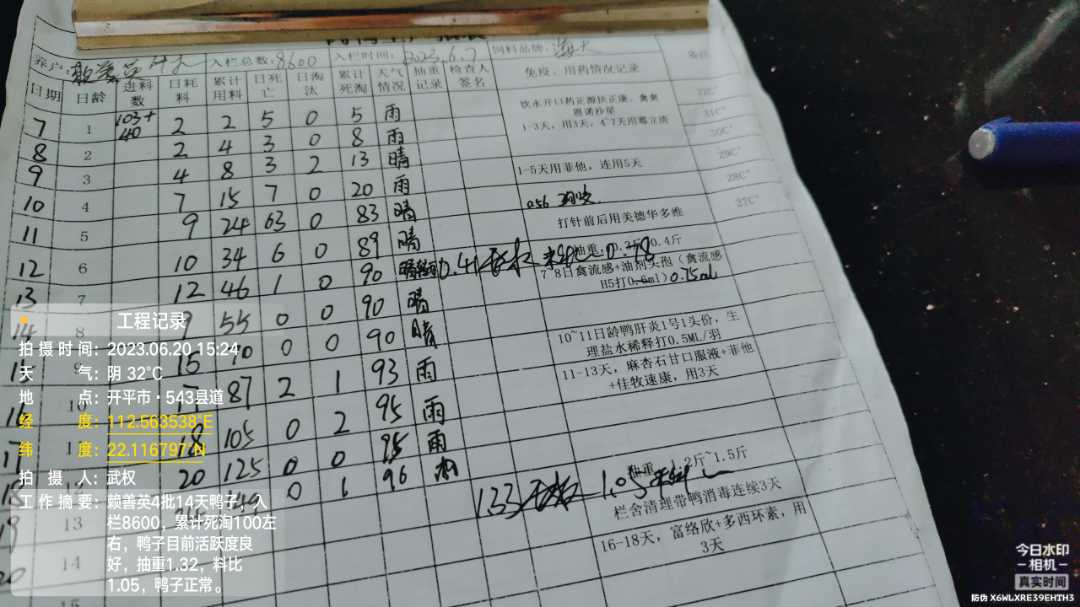 养户:
入栏总数: 8600
入栏时间: 2023.6.7
饲料品牌: 海大
日期 日龄 进料数 日耗料 累计用料 日死亡 日淘汰 累计死淘 天气情况 抽重记录 检查人签名 免疫、用药情况记录 备注
7 1 103+140 2 2 5 0 5 雨
1-3天, 用3天, 4~7天用霉立清
8 2 2 4 3 0 8 雨
9 3 4 8 3 2 13 晴 1-5天用菲他, 连用5天
10 4 7 15 7 0 20 雨
11 5 9 24 63 0 83 晴 打针前后用美德华多维
12 6 10 34 6 0 89 晴
13 7 12 46 1 0 90 7~8日禽流感+油剂头孢(禽流感H5打0.6ml) 0.75ml
14 8 9 55 0 0 90 晴
15 9 15 70 0 0 90 晴 10~11日龄鸭肝炎1号1头份, 生理盐水稀释打0.5ML/羽
16 10 87 2 1 93 雨 11-13天, 麻杏石甘口服液+菲他+佳牧速康, 用3天
18 105 0 2 95 雨
20 125 0 0 95 雨
0 1 96
133 1.05
2斤~1.5斤
13 栏舍清理带鸭消毒连续3天
14 16-18天, 富络欣+多西环素, 用3天
15
31C°
30C°
29C°
28C°
27C°
工程记录
拍摄时间: 2023.06.20 15:24
天气: 阴 32℃
地点: 开平市·543县道
经度: 112.563538°E
纬度: 22.116797°N
拍摄人: 武权
工作摘要: 赖善英4批14天鸭子,入
栏8600, 累计死淘100左
右, 鸭子目前活跃度良
好, 抽重1.32, 料比
1.05, 鸭子正常。
今日水印
-相机-
真实时间
防伪 X6WLXRE39EHTH3